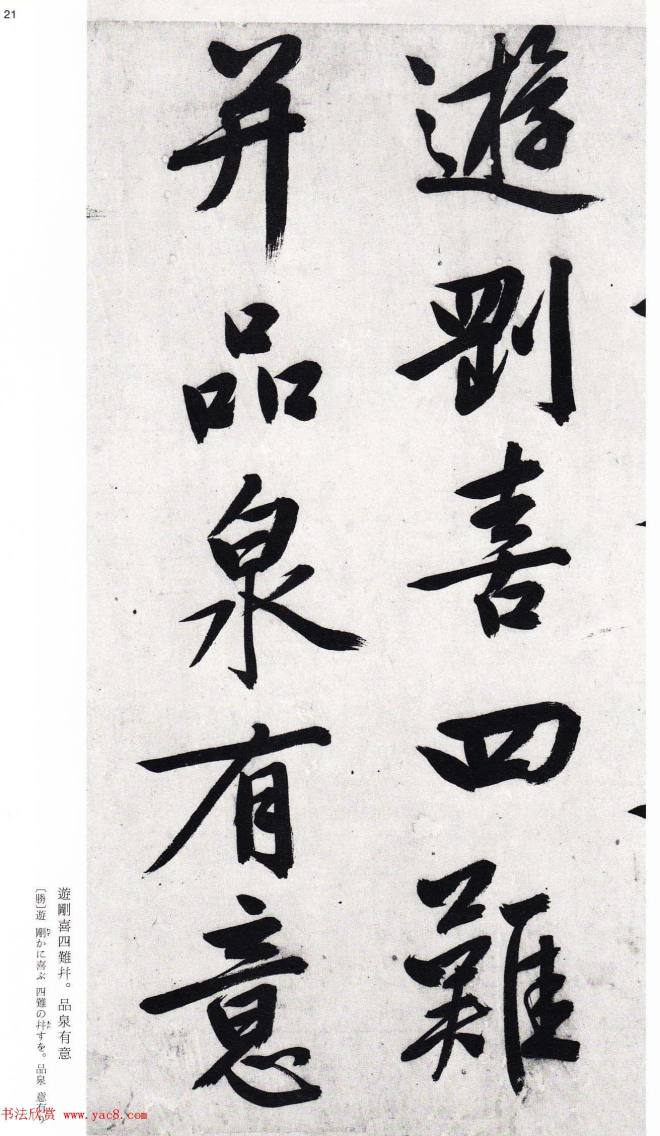 21
遊剛喜四難
并品泉有意
遊剛喜四難幷。品泉有意
〔勝〕遊 剛かに喜ぶ 四難の幷すを。品泉 意有り
书法欣赏 www.yac8.com